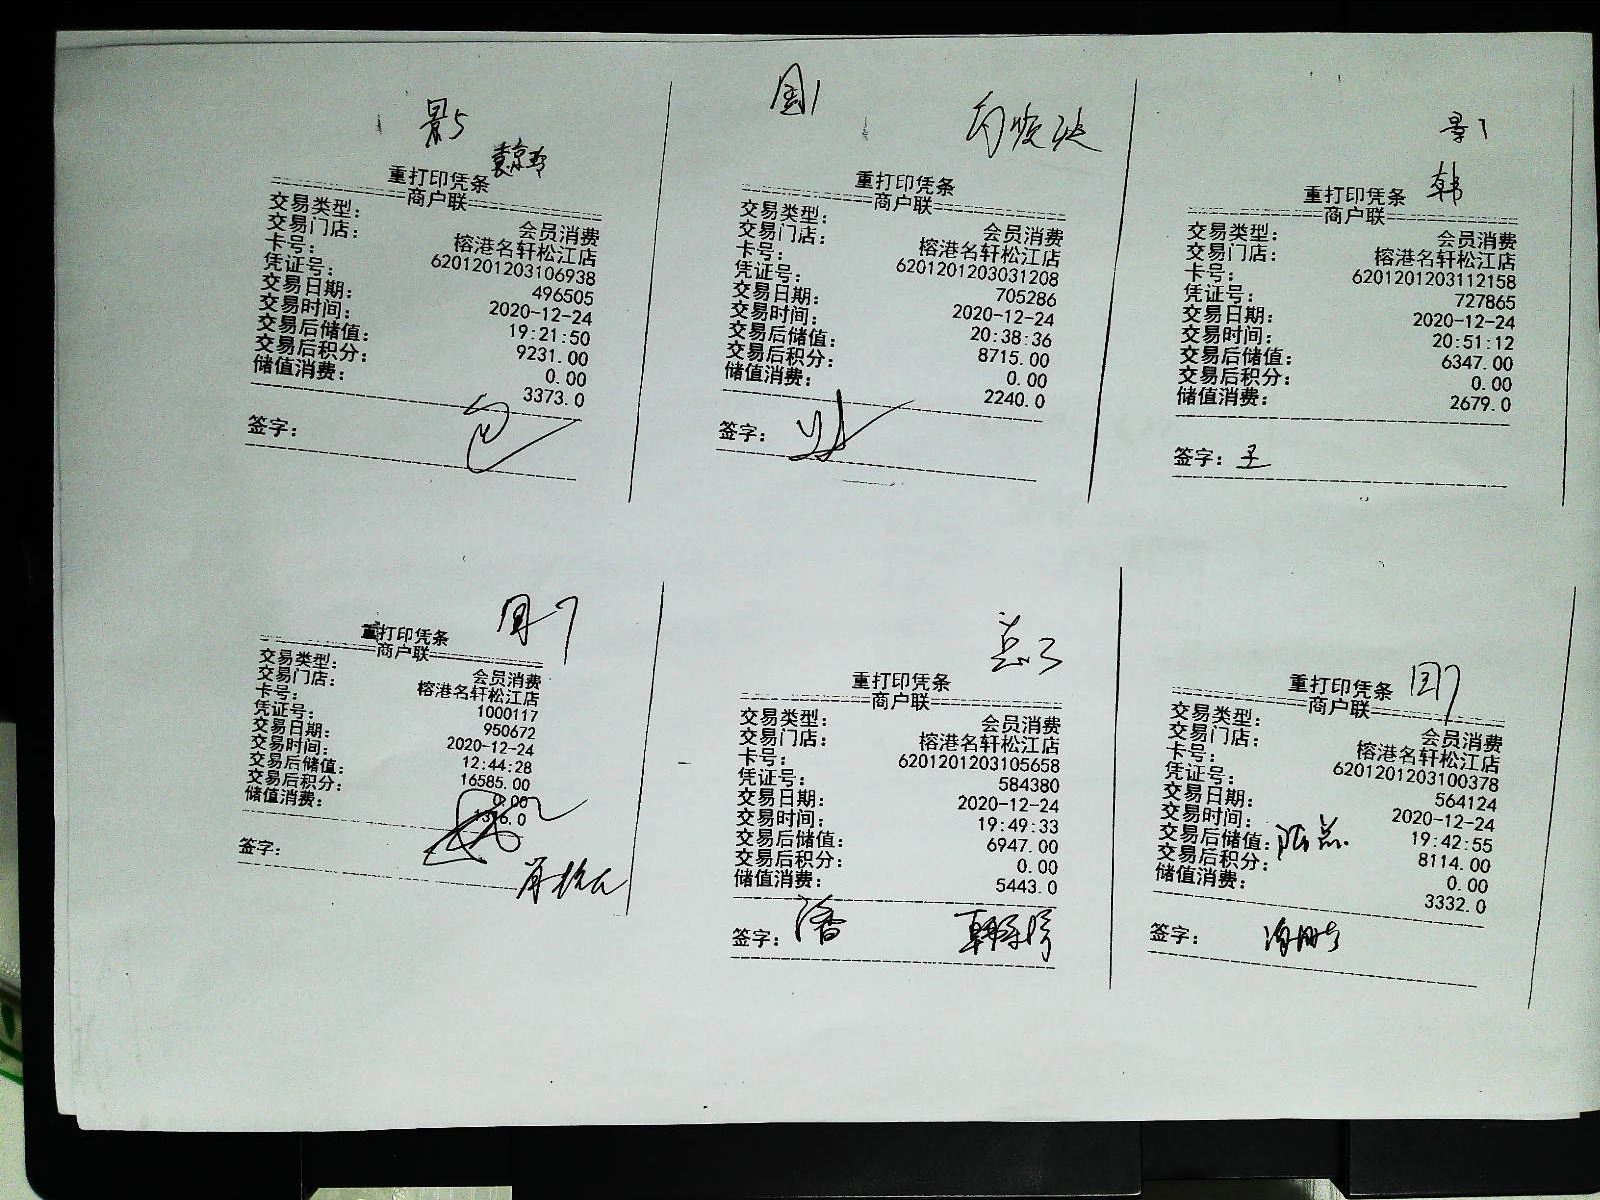 景5
重打印凭条
商户联
交易类型：
会员消费
交易门店：
榕港名轩松江店
卡号：
6201201203106938
凭证号：
496505
交易日期：
2020-12-24
交易时间：
19:21:50
交易后储值：
9231.00
交易后积分：
0.00
储值消费：
3373.0
签字：
国1
重打印凭条
商户联
交易类型：
会员消费
交易门店：
榕港名轩松江店
卡号：
6201201203031208
凭证号：
705286
交易日期：
2020-12-24
交易时间：
20:38:36
交易后储值：
8715.00
交易后积分：
0.00
储值消费：
2240.0
签字：
景7
韩
重打印凭条
商户联
交易类型：
会员消费
交易门店：
榕港名轩松江店
卡号：
6201201203112158
凭证号：
727865
交易日期：
2020-12-24
交易时间：
20:51:12
交易后储值：
6347.00
交易后积分：
0.00
储值消费：
2679.0
签字：王
国7
重打印凭条
商户联
交易类型：
会员消费
交易门店：
榕港名轩松江店
卡号：
1000117
凭证号：
950672
交易日期：
2020-12-24
交易时间：
12:44:28
交易后储值：
16585.00
交易后积分：
0.00
储值消费：
签字：
重打印凭条
商户联
交易类型：
会员消费
交易门店：
榕港名轩松江店
卡号：
6201201203105658
凭证号：
584380
交易日期：
2020-12-24
交易时间：
19:49:33
交易后储值：
6947.00
交易后积分：
0.00
储值消费：
5443.0
签字：
国7
重打印凭条
商户联
交易类型：
会员消费
交易门店：
榕港名轩松江店
卡号：
6201201203100378
凭证号：
564124
交易日期：
2020-12-24
交易时间：
19:42:55
交易后储值：
8114.00
交易后积分：
0.00
储值消费：
3332.0
签字：